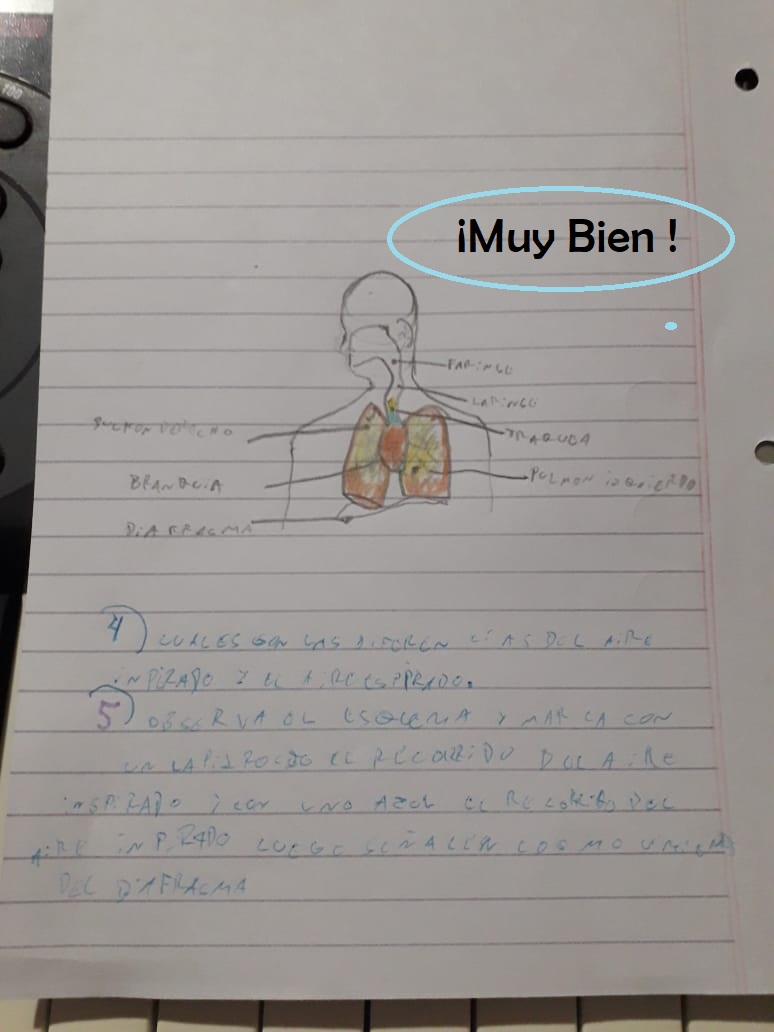 ¡Muy Bien !
FARINGE
LARINGE
TRAQUEA
PULMON DERECHO
BRANQUIA
PULMON IZQUIERDO
DIAFRAGMA
4) CUALES SON LAS DIFERENCIAS DEL AIRE
INPIRADO Y EL AIRE ESPIRADO.
5) OBSERVA EL ESQUEMA Y MARCA CON
UN LAPIZ ROJO EL RECORRIDO DEL AIRE
INSPIRADO Y CON UNO AZUL EL RECORIDO DEL
AIRE INPIRADO LUEGO SEÑALEN LOS
DEL DIAFRAGMA